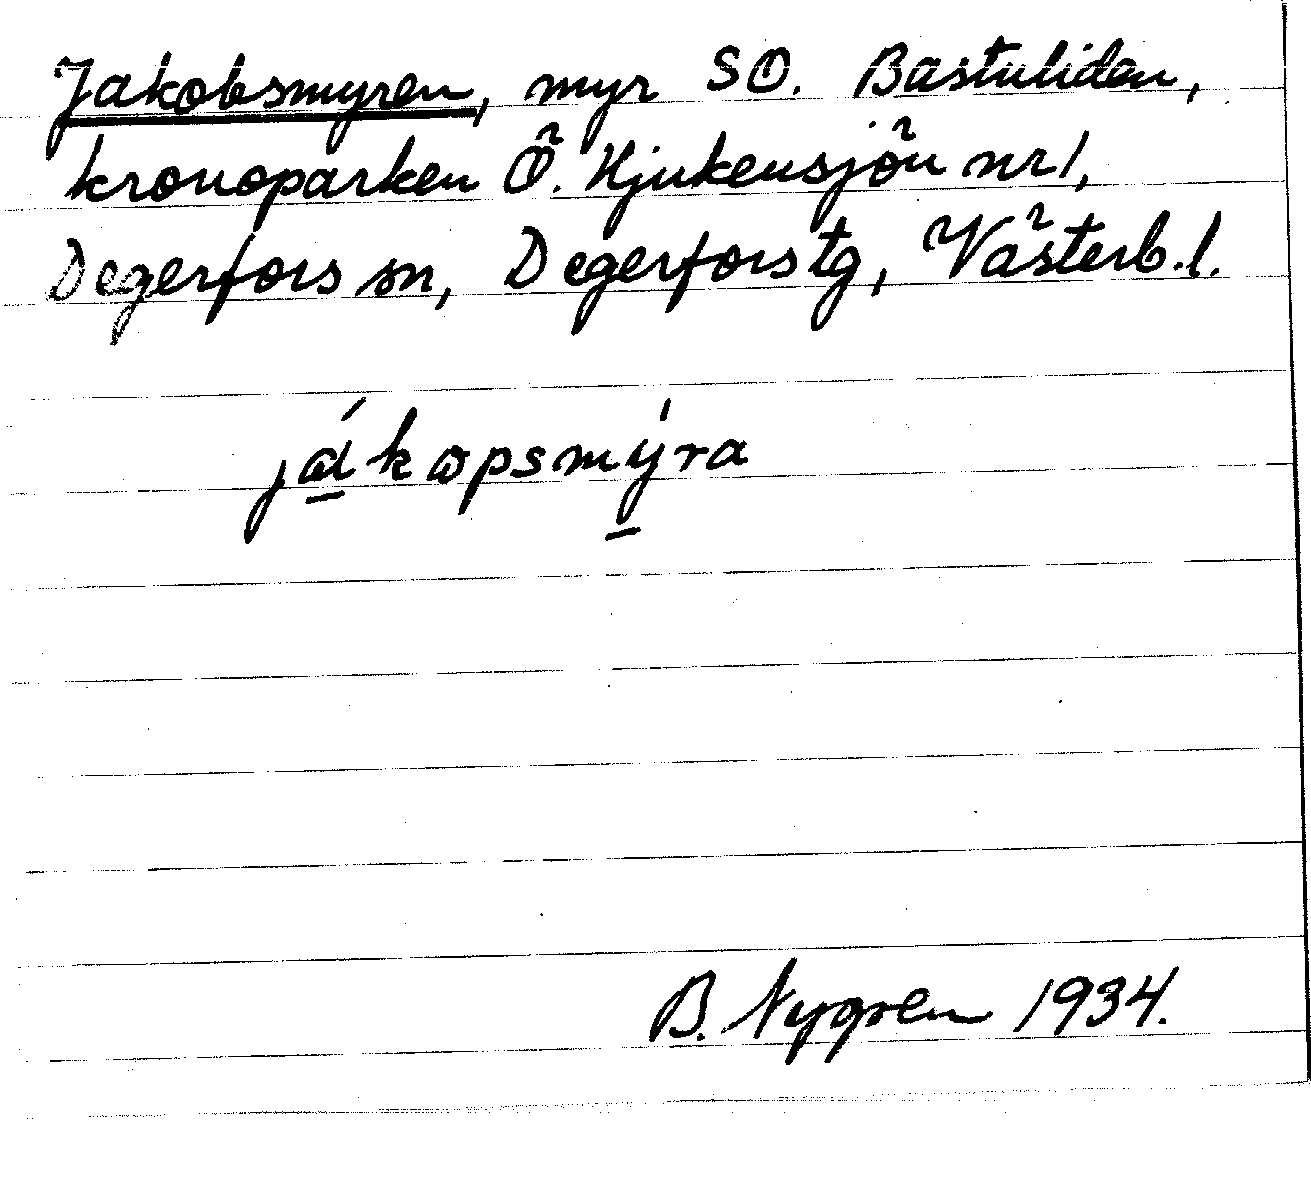 Jakobsmyren, myr SO. Bastuliden,
kronoparken Ö. Hjukensjön nr 1,
Degerfors sn, Degerfors tg, Västerb. l.
jákopsmýra
B. Nygren 1934.